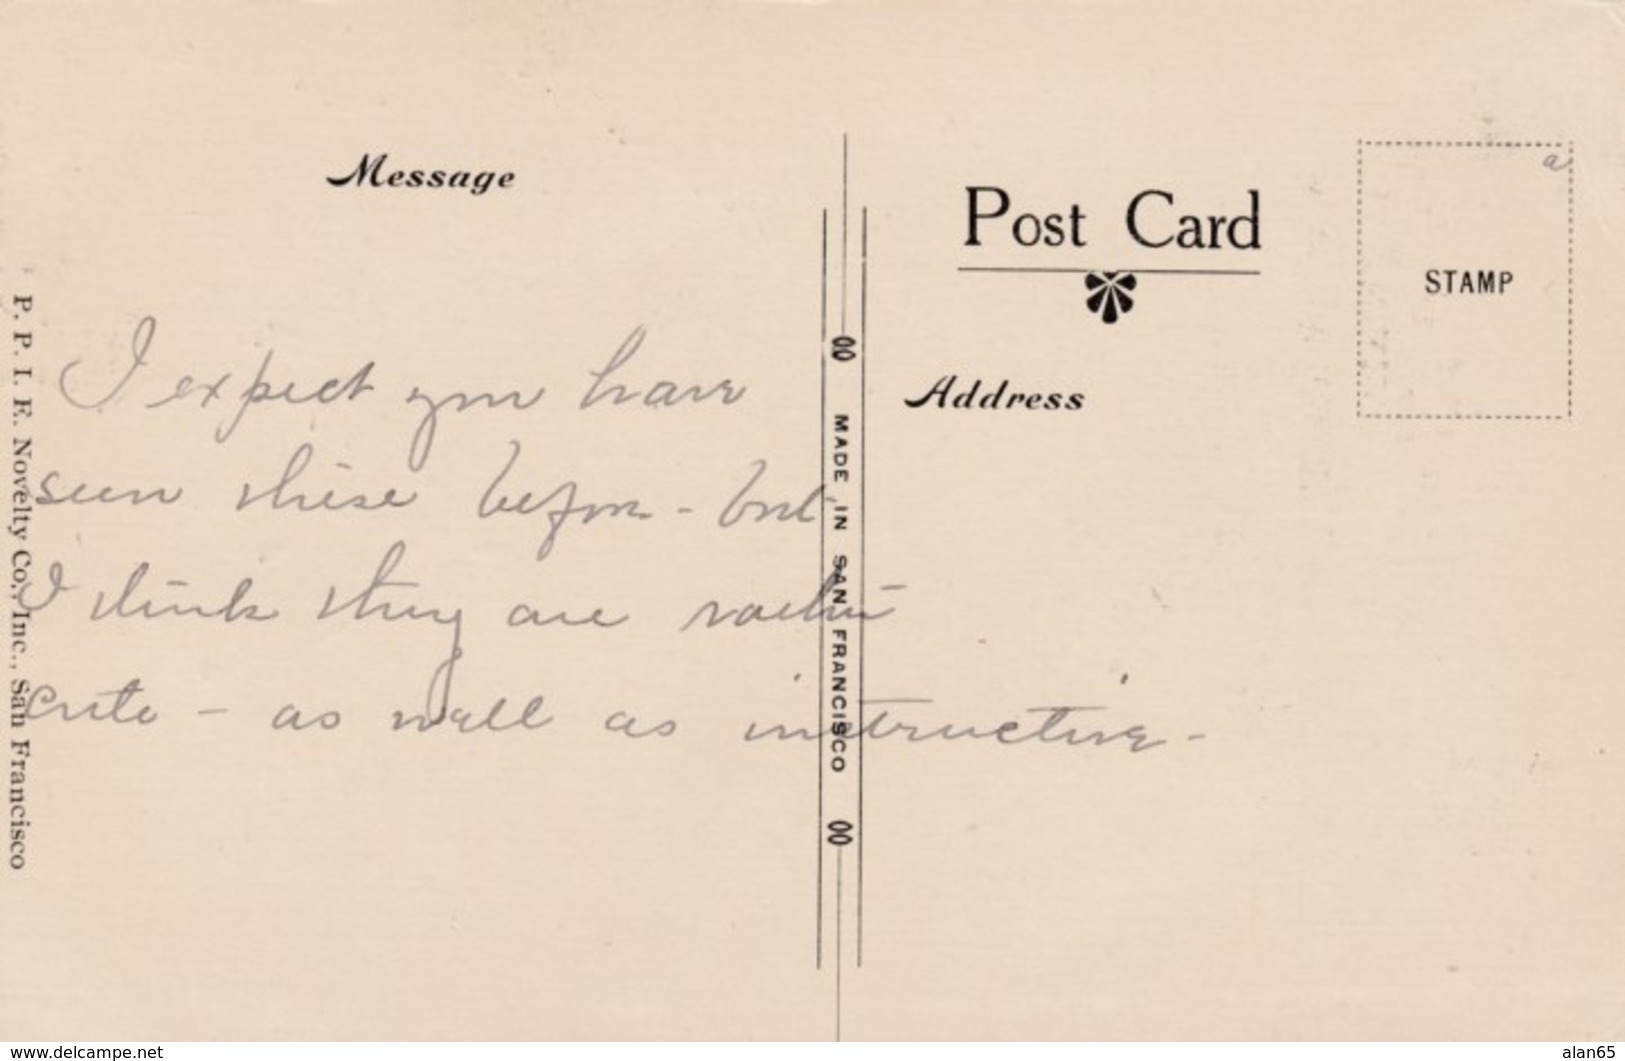 Message
Post Card
STAMP
a
Address
I expect you have
seen these before - but
I think they are rather
cute - as well as instructive -
P. P. I. E. Novelty Co., Inc., San Francisco
MADE IN SAN FRANCISCO
www.delcampe.net
alan65